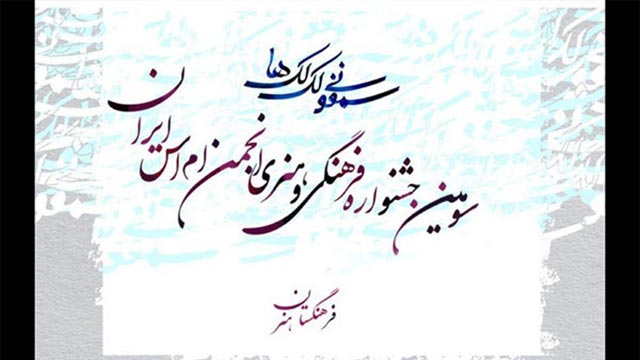 سمفونی لک لک ها
سومین جشنواره فرهنگی و هنری انجمن ام اس ایران
فرهنگستان هنر